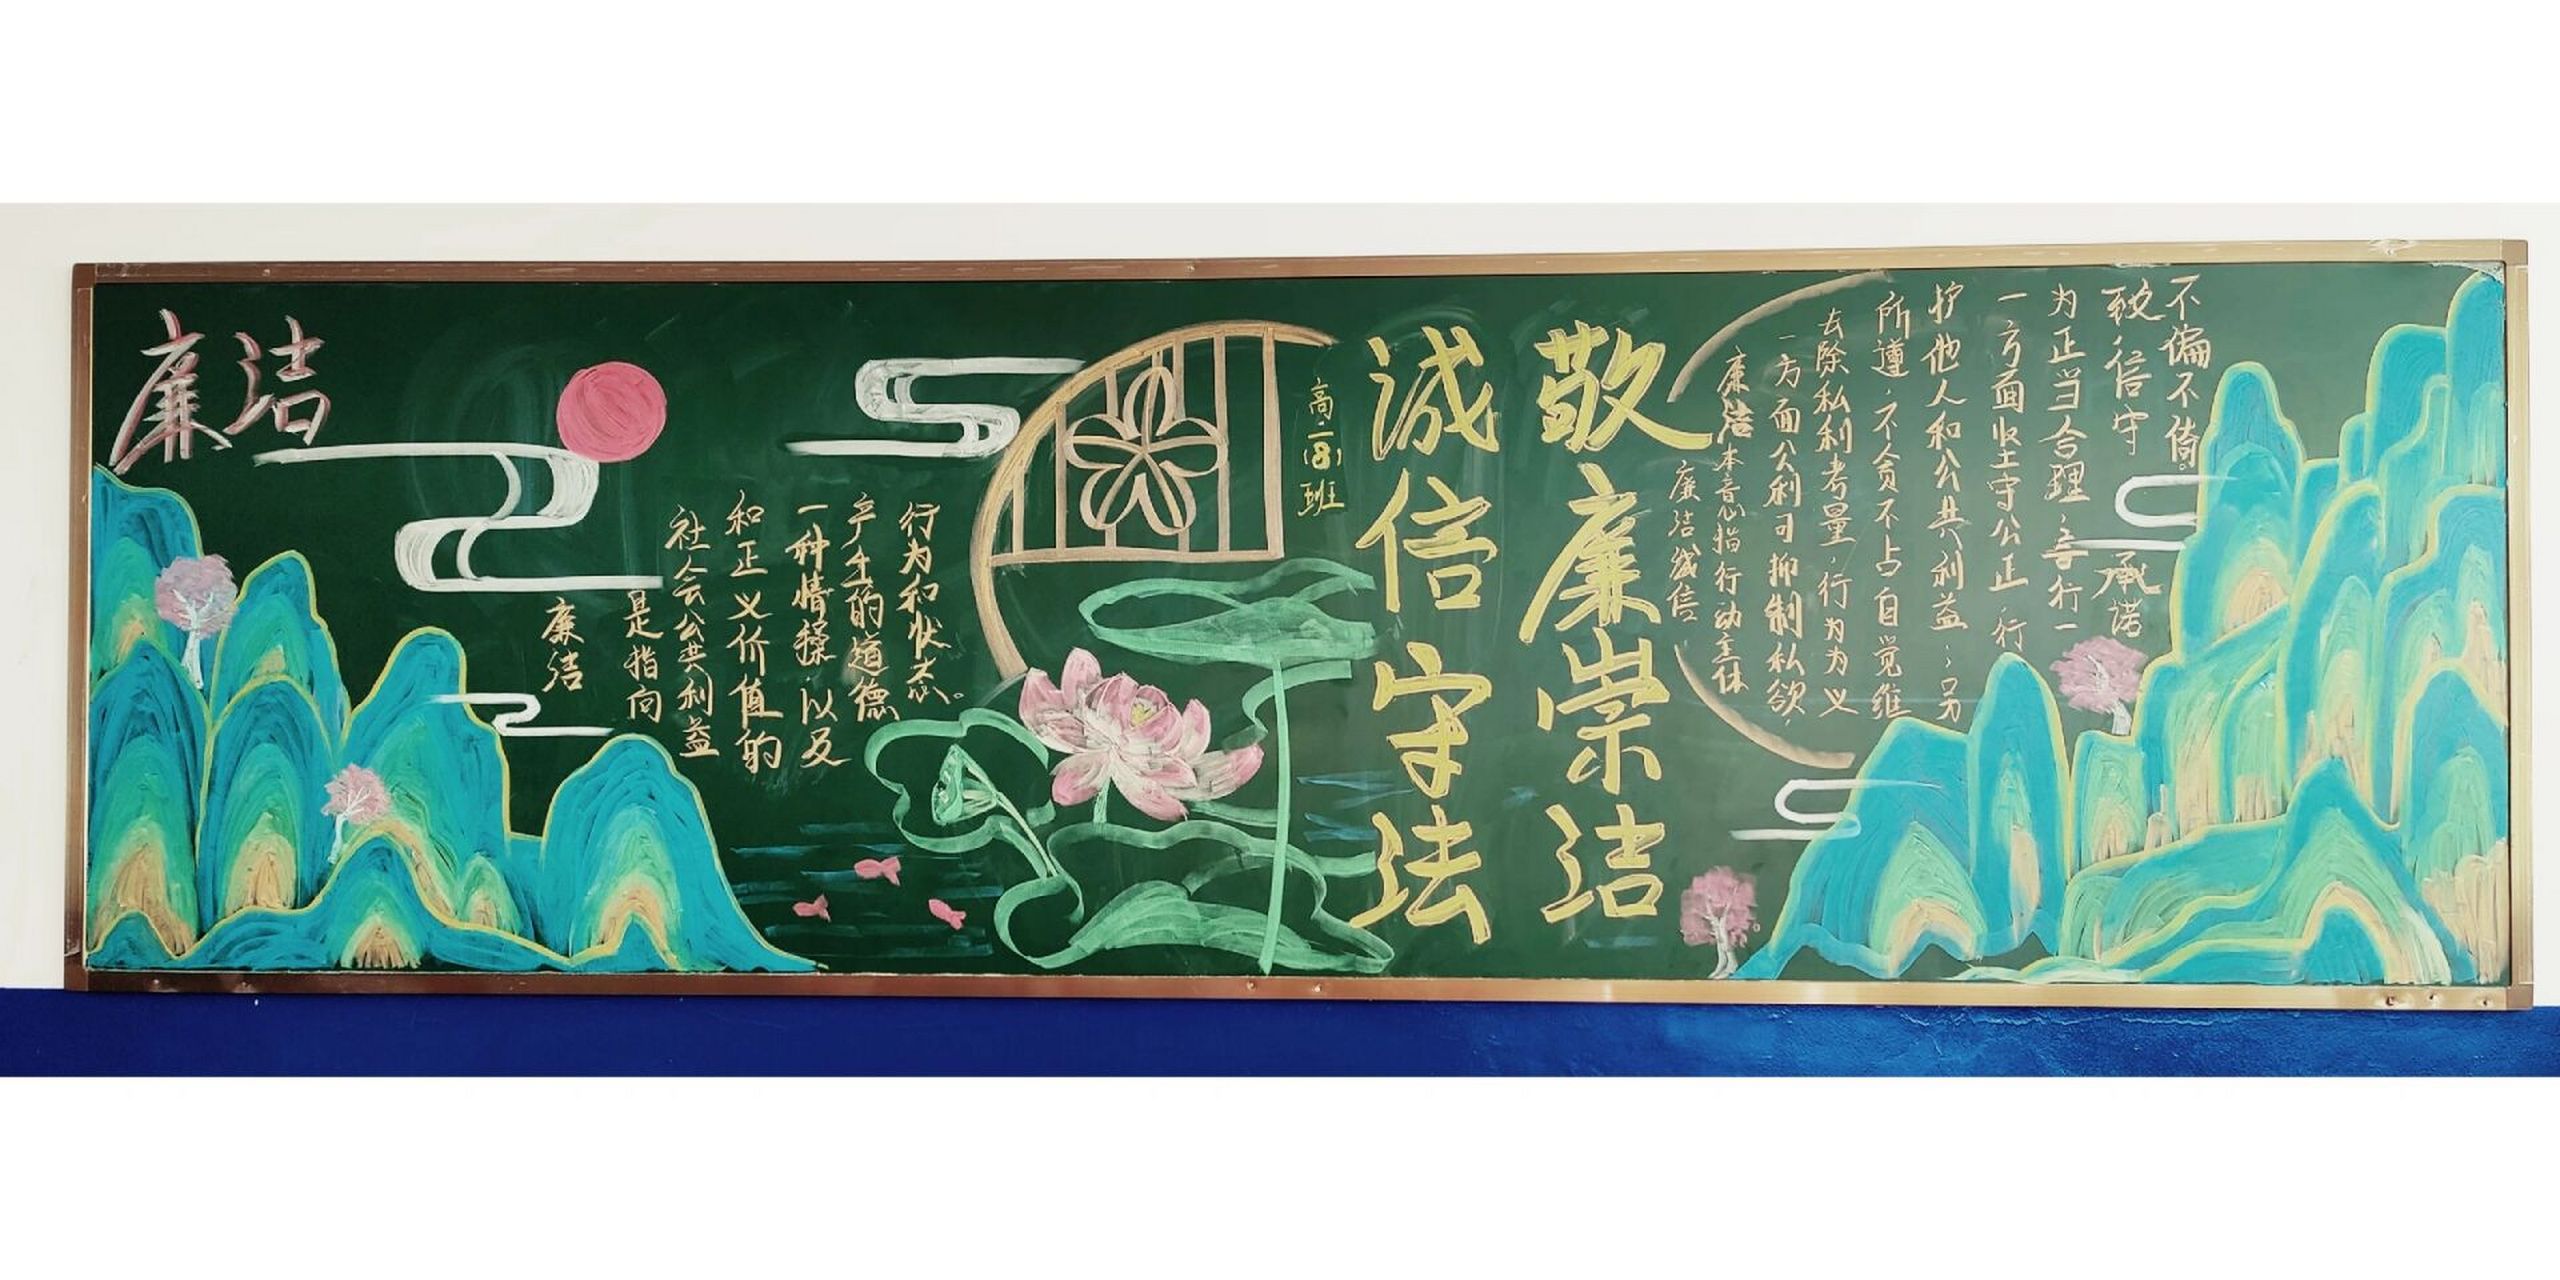 廉洁
廉洁
是指向
社会公共利益
和正义价值的
一种情操,以及
产生的道德
行为和状态。
高二(8)班
敬廉崇洁
诚信守法
廉洁诚信
廉洁本意指行动主体
一方面公利可抑制私欲,
去除私利考量,行为为义
所遵,不贪不占自觉维
护他人和公共利益;另
一方面坚守公正,行
为正当合理,言行一
致,信守承诺
不偏不倚。